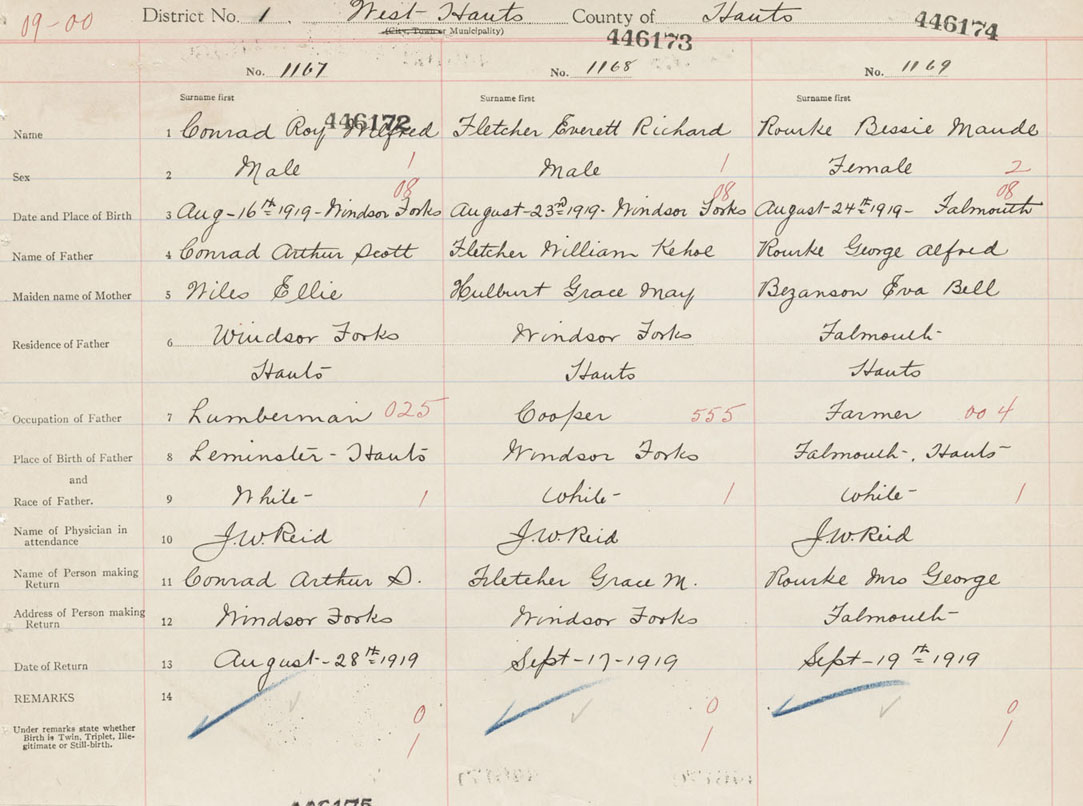 09-00
District No. 1. West Hants County of Hants
(City, Town or Municipality)
446173
446174
No. 1167 No. 1168 No. 1169
Surname first Surname first Surname first
446172
Name 1 Conrad Roy Wilfred Fletcher Everett Richard Rourke Bessie Maude
Sex 2 Male 1 Male 1 Female 2
08 08 08
Date and Place of Birth 3 Aug-16th 1919-Windsor Forks August-23rd 1919-Windsor Forks August-24th 1919- Falmouth
Name of Father 4 Conrad Arthur Scott Fletcher William Kehoe Rourke George Alfred
Maiden name of Mother 5 Wiles Ellie Hulburt Grace May Bezanson Eva Bell
Residence of Father 6 Windsor Forks Windsor Forks Falmouth
Hants Hants Hants
Occupation of Father 7 Lumberman 025 Cooper 555 Farmer 004
Place of Birth of Father 8 Leminster-Hants Windsor Forks Falmouth, Hants
and
Race of Father. 9 White- 1 White- 1 White- 1
Name of Physician in
attendance 10 J.W. Reid J.W. Reid J.W. Reid
Name of Person making
Return 11 Conrad Arthur S. Fletcher Grace M. Rourke Mrs George
Address of Person making
Return 12 Windsor Forks Windsor Forks Falmouth
Date of Return 13 August-28th 1919 Sept-17-1919 Sept-19th 1919
REMARKS 14
0 0 0
Under remarks state whether
Birth is Twin, Triplet, Ille-
gitimate or Still-birth.
1 1 1
446175